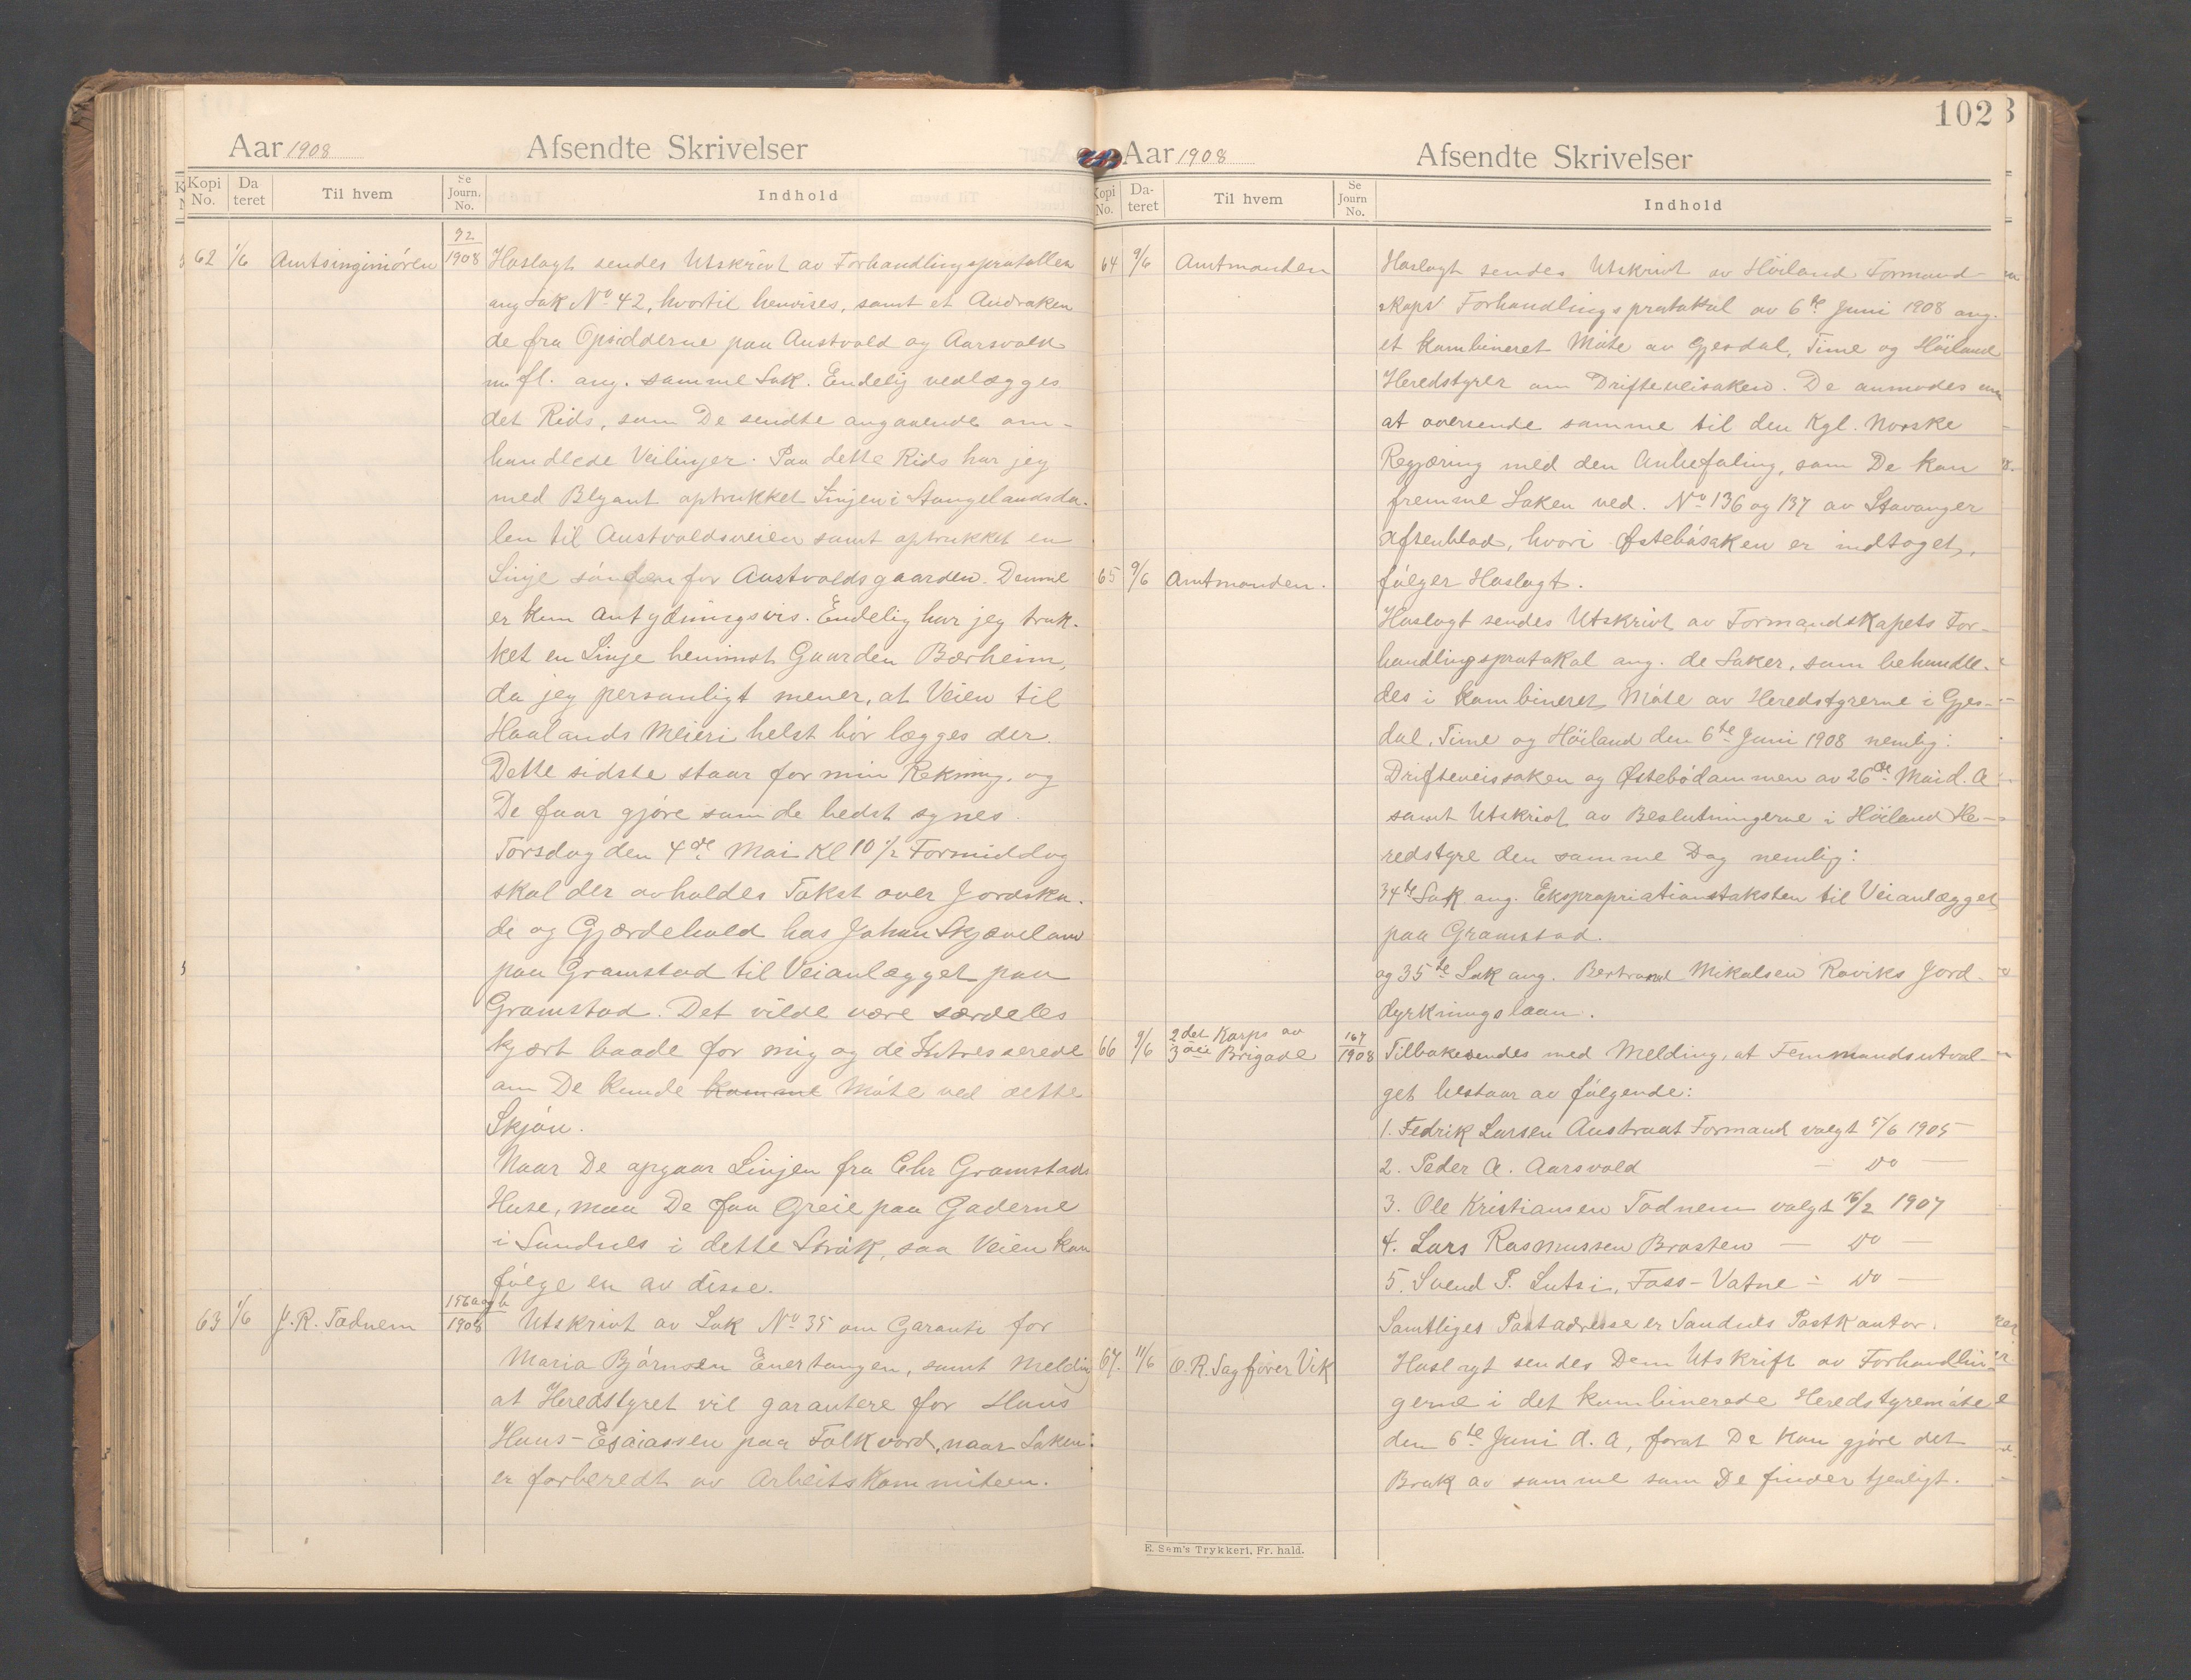 102
Aar 1908 Afsendte Skrivelser
Kopi No. Da teret Til hvem Se Journ. No. Indhold
92
62 1/6 Amtsingeniøren 1908 Haslagt sendes Utskrivt av Forhandlingsprotollen
ang Sak No 42, hvortil henvises, samt et Andraken
de fra Opsidderne paa Austvold og Aarsvold
m fl. ang. samme Sak. Endelig vedlægges
det Rids, som De sendte angaaende om-
handlede Veilinjer. Paa dette Rids har jeg
med Blyant optrukket Linjen i Stangelandsda-
len til Austvoldsveien samt optrukket en
Linje sønden for Austvoldsgaarden. Denne
er kun antydningsvis. Endelig har jeg truk-
ket en Linje henimot Gaarden Bærheim,
da jeg personligt mener, at Veien til
Haalands Meieri helst bør lægges der.
Dette sidste staar for min Rekning, og
De faar gjøre som de bedst synes.
Torsdag den 4de Mai Kl 10 1/2 Formiddag
skal der avholdes Takst over Jordska-
de og Gjærdehold hos Johan Skjæveland
paa Gramstad til Veianlægget paa
Gramstad. Det vilde være særdeles
kjært baade for mig og de Intresserede
om De kunde komme Møte ved dette
Skjøn.
Naar De opgaar Linjen fra Chr Gramstads
Huse, maa De faa Greie paa Gaderne
i Sandnes i dette Strøk, saa Veien kan
følge en av disse.
156 a og b
63 1/6 J. R. Todnem 1908 Utskrivt av Sak No 35 om Garanti for
Maria Bjørnsen Enertangen, samt Melding
at Heredstyret vil garantere for Hans
Hans-Esaiassen paa Folkvord, naar Saken
er forberedt av Arbeitskommiteen.
Aar 1908 Afsendte Skrivelser
Kopi No. Da- teret Til hvem Se Journ No. Indhold
64 9/6 Amtmanden Haslagt sendes Utskrivt av Höiland Formand-
skaps Forhandlingsprotokol av 6te Juni 1908 ang.
et kombineret Møte av Gjesdal, Time og Höiland
Heredstyrer om Drifteveisaken. De anmodes om
at oversende samme til den Kgl. Norske
Regjæring med den Anbefaling, som De kan
fremme Saken ved. No 136 og 137 av Stavanger
Aftenblad, hvori Østebøsaken er indtaget,
65 9/6 Amtmanden. følger Haslagt.
Haslagt sendes Utskrivt av Formandskapets For-
handlingsprotokol ang. de Saker, som behandle-
des i kombineret Møte av Heredstyrerne i Gjes-
dal, Time og Höiland den 6te Juni 1908 nemlig:
Drifteveissaken og Østebødammen av 26de Mai d. A
samt Utskrivt av Beslutningerne i Höiland He-
redstyre den samme Dag nemlig:
34te Sak ang. Ekspropriationstaksten til Veianlægget
paa Gramstad.
og 35te Sak ang. Bertrand Mikalsen Roviks Jord-
dyrkningslaan.
2det Korps av 167
66 9/6 3die Brigade 1908 Tilbakesendes med Melding, at Femmandsutval-
get bestaar av følgende:
1. Fedrik Larsen Austraat Formand valgt 5/6 1905
2. Peder A. Aarsvold — Do —
3. Ole Kristiansen Todnem valgt 16/2 1907
4. Lars Rasmussen Brasten — Do —
5. Svend P. Lutsi, Foss-Vatne — Do —
Samtliges Postadresse er Sandnes Postkontor.
67. 11/6 O. R. Sagfører Vik Haslagt sendes Dem Utskrift av Forhandlin-
gerne i det kombinerede Heredstyremøte
den 6te Juni d. A, forat De kan gjøre det
Bruk av samme som De finder tjenligt.
E. Sem's Trykkeri, Fr. hald.